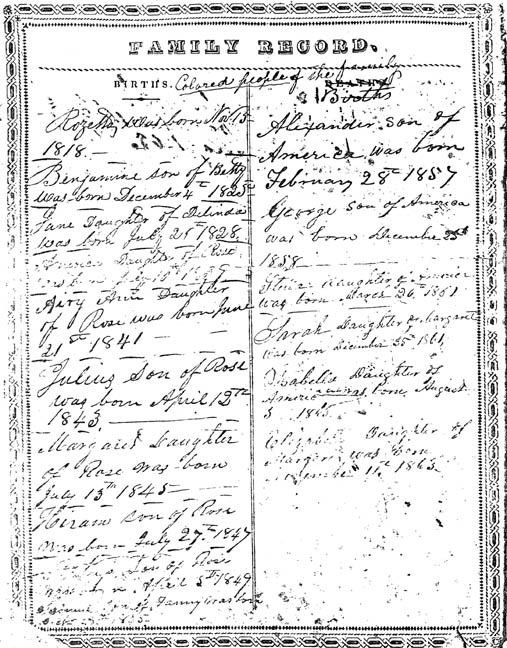 FAMILY RECORD.
BIRTHS. Colored people of the family
DEATHS
Births
Rozetta was born Nov 15
1818.
Benjamine son of Betty
was born December 4th 1825
Jane Daughter of Delinda
was born July 21st 1828
America Daughter of Rose
was born July
Airy Ann Daughter
of Rose was born June
21st 1841
Julius Son of Rose
was born April 12th
1843.
Margaret Daughter
of Rose was born
July 15th 1845
Hiram son of Rose
was born July 27th 1847
Son of Rose
was born April 5th 1849
son of Fanny was born
1855
Alexander son of
America was born
February 28th 1857
George son of America
was born December 25th
1858
Daughter of America
was born March 26th 1861
Sarah Daughter of Margaret
was born December 25th 1861
Isabella Daughter of
America was born August
3
Daughter of
Margaret was born
11th 1863